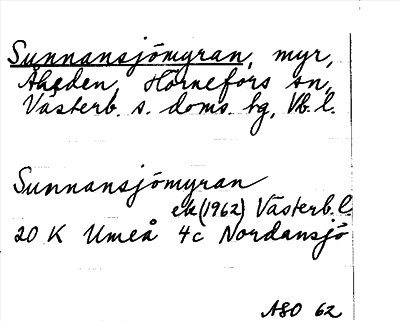 Sunnansjömyran, myr,
Åheden, Hörnefors sn,
Västerb. s. doms. hg, Vb. l.
Sunnansjömyran
ek (1962) Västerb. l.
20 K Umeå 4c Nordansjö
ASO 62